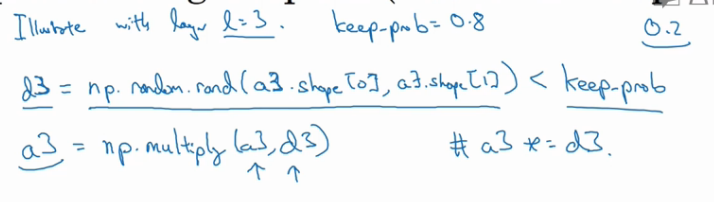 Illustrate with layer l=3. keep-prob=0.8 0.2
d3 = np.random.rand(a3.shape[0], a3.shape[1]) < keep-prob
a3 = np.multiply(a3, d3) # a3 *= d3.